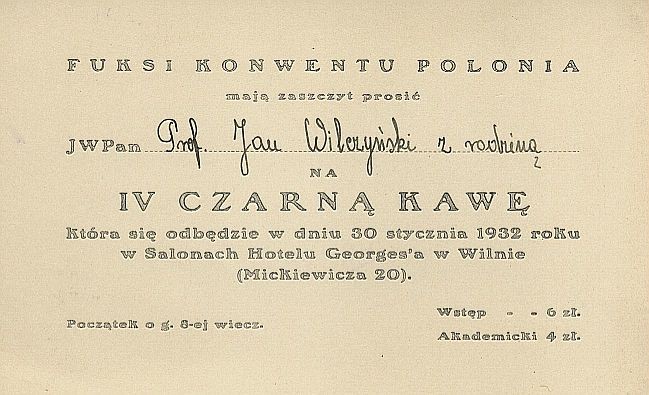 FUKSI KONWENTU POLONIA
mają zaszczyt prosić
JWPan Prof. Jan Wilczyński z rodziną
NA
IV CZARNĄ KAWĘ
która się odbędzie w dniu 30 stycznia 1932 roku
w Salonach Hotelu Georges'a w Wilnie
(Mickiewicza 20).
Początek o g. 8-ej wiecz.
Wstęp - - 6 zł.
Akademicki 4 zł.